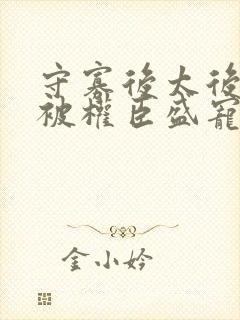 守寡後太後
被權臣盛寵
金小妗